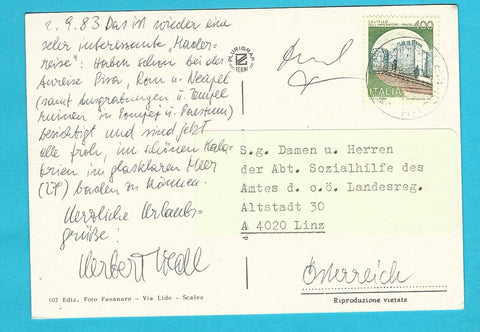 2.9.83 Das ist wieder eine
sehr interessante
reise": Haben schon bei der
Anreise Pisa, Rom u. Neapel
(samt Ausgrabungen u. Tempel
ruinen in Pompeji u. Paestum)
besichtigt und sind jetzt
alle froh, im schönen Kala-
brien im glasklaren Meer
(27°) baden zu können.
Herzliche Urlaubs-
grüße!
Herbert
PLURIGRAF
TERNI
400
S.g. Damen u. Herren
der Abt. Sozialhilfe des
Amtes d. o.ö. Landesreg.
Altstadt 30
A 4020 Linz
Österreich
107 Ediz. Foto Fasanaro - Via Lido - Scalea
Riproduzione vietata